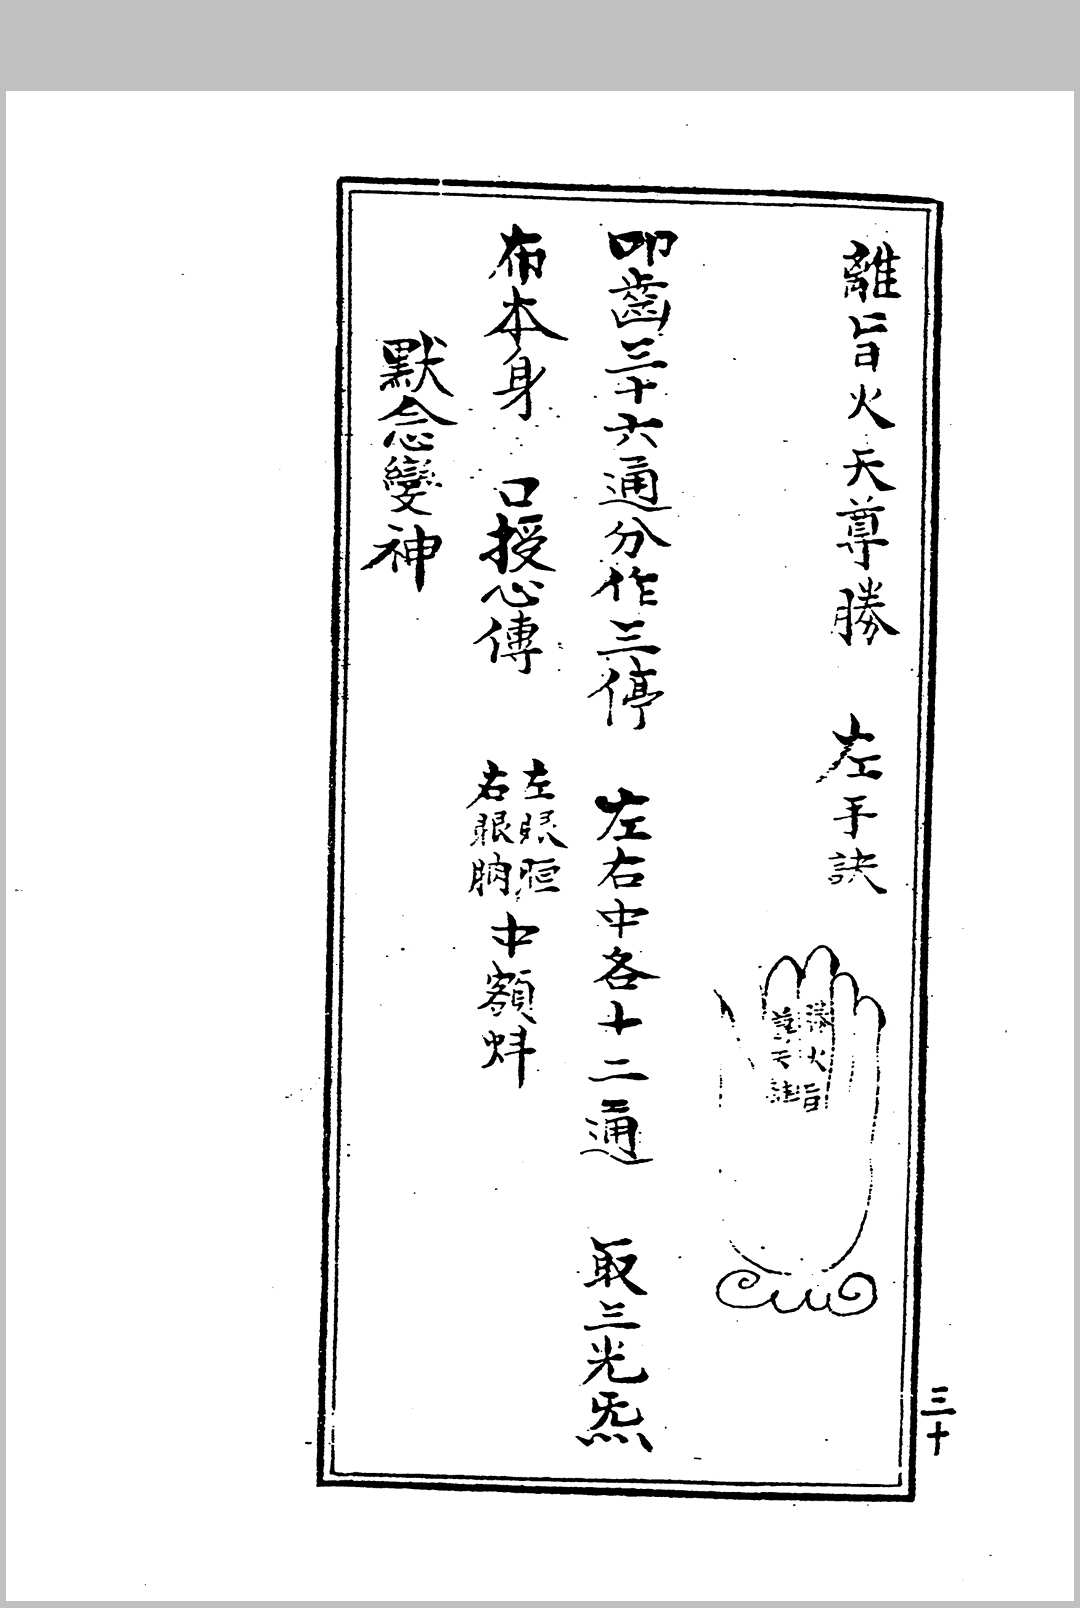 離旨火天尊勝　左手訣
勝火旨
尊天離
叩齒三十六通分作三停　左右中各十二通　取三光炁
布本身　口授心傳　左眼𣆳
右眼朒
中額𧊧
默念變神
三十